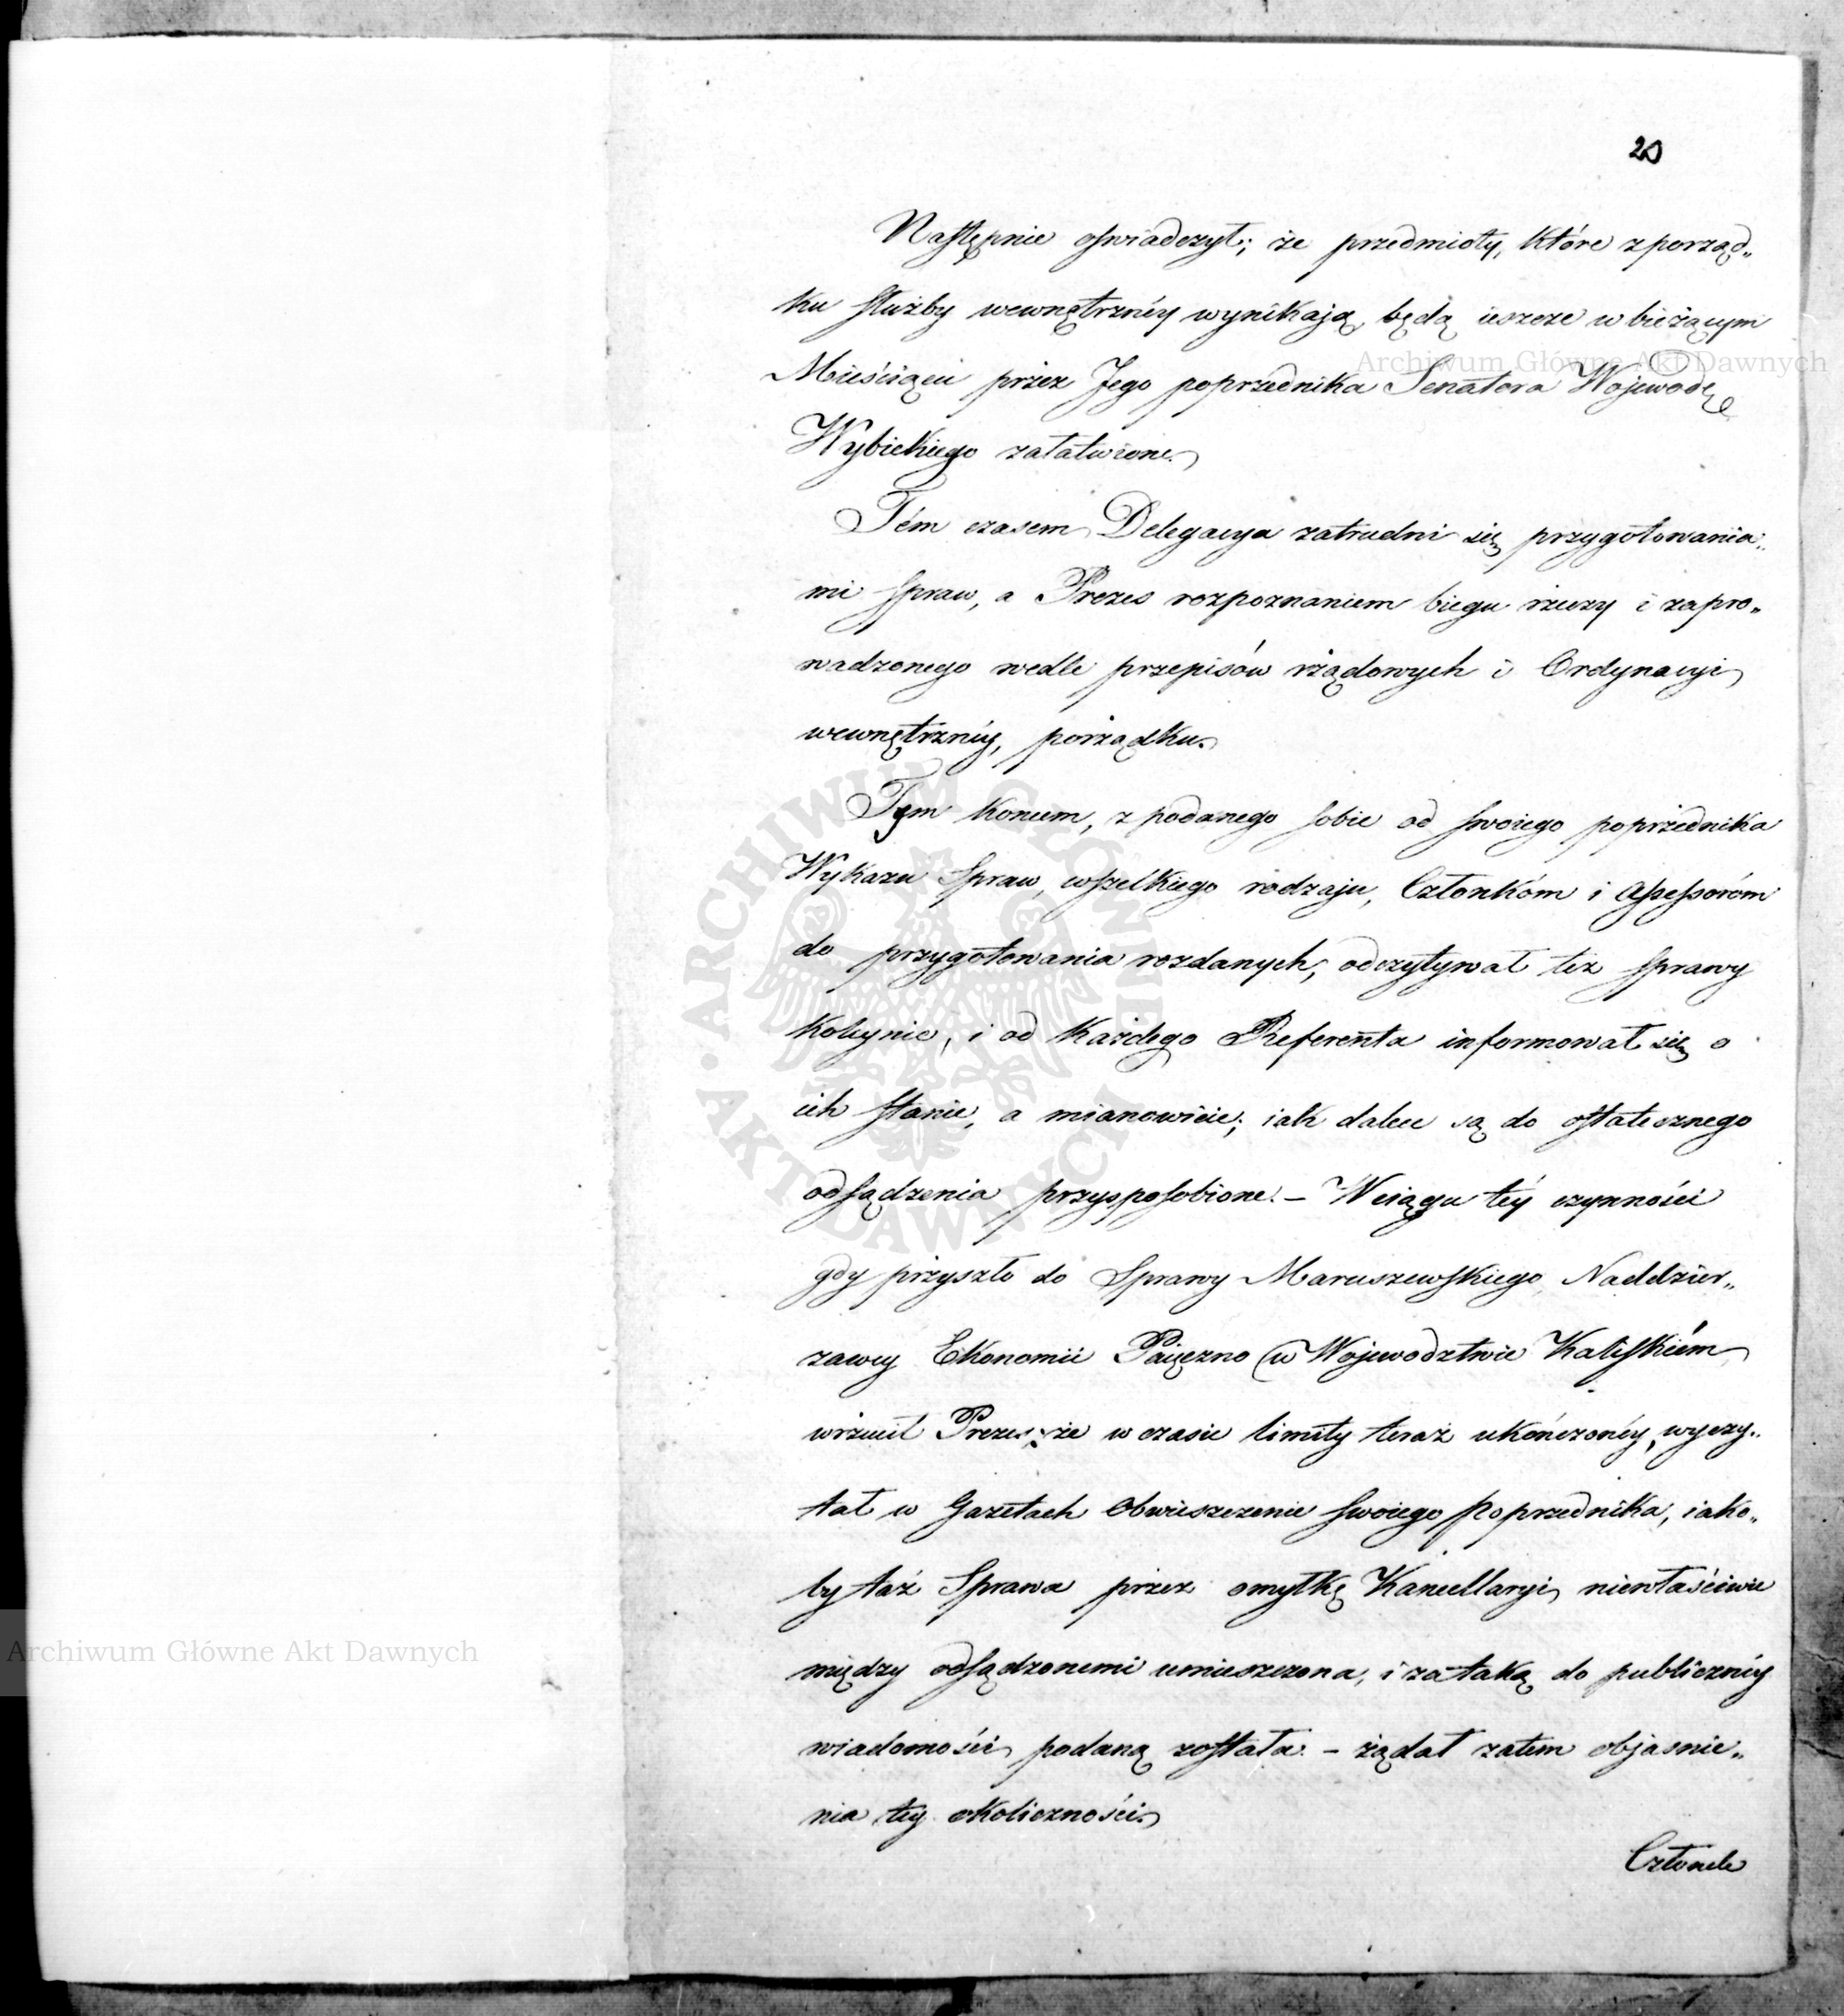 20
Następnie oświadczył; że przedmioty, które z porząd„
ku służby wewnętrznéy wynikają, będą ieszcze w bieżącym
Mieściącu przez Jego poprzednika Senatora Wojewodę
Wybickiego załatwione.
Tém czasem Delegacya zatrudni się przygotowania„
mi spraw, a Prezes rozpoznaniem biegu rzeczy i zapro„
wadzonego wedle przepisów rządowych i Ordynacyi
wewnętrznéy, porządku.
Tym koncem, z podanego sobie od swoiego poprzednika
Wykazu Spraw, wszelkiego rodzaju, Członkóm i Assessoróm
do przygotowania rozdanych, odczytywał też sprawy
koleynie, i od każdego Referenta informował się o
ich stanie, a mianowicie; iak dalece są do ostatecznego
odsądzenia przysposobione. – W ciągu téy czynności
gdy przyszło do Sprawy Maruszewskiego, Naddzier„
zawcy Ekonomii Paięczno w Województwie Kaliskiém
wrzucił Prezes, że w czasie limity teraz ukończonéy, wyczy„
tał w Gazetach Obwieszczenie swoiego Poprzednika, iako„
by taż Sprawa przez omyłkę Kancellaryi, niewłaściwie
między odsądzonemi umieszczona, i za taką do publicznéy
wiadomości podaną została. – żądał zatem objasnie„
nia téy okoliczności.
Członek
Archiwum Główne Akt Dawnych
Archiwum Główne Akt Dawnych
ARCHIWUM GŁÓWNE • AKT DAWNYCH